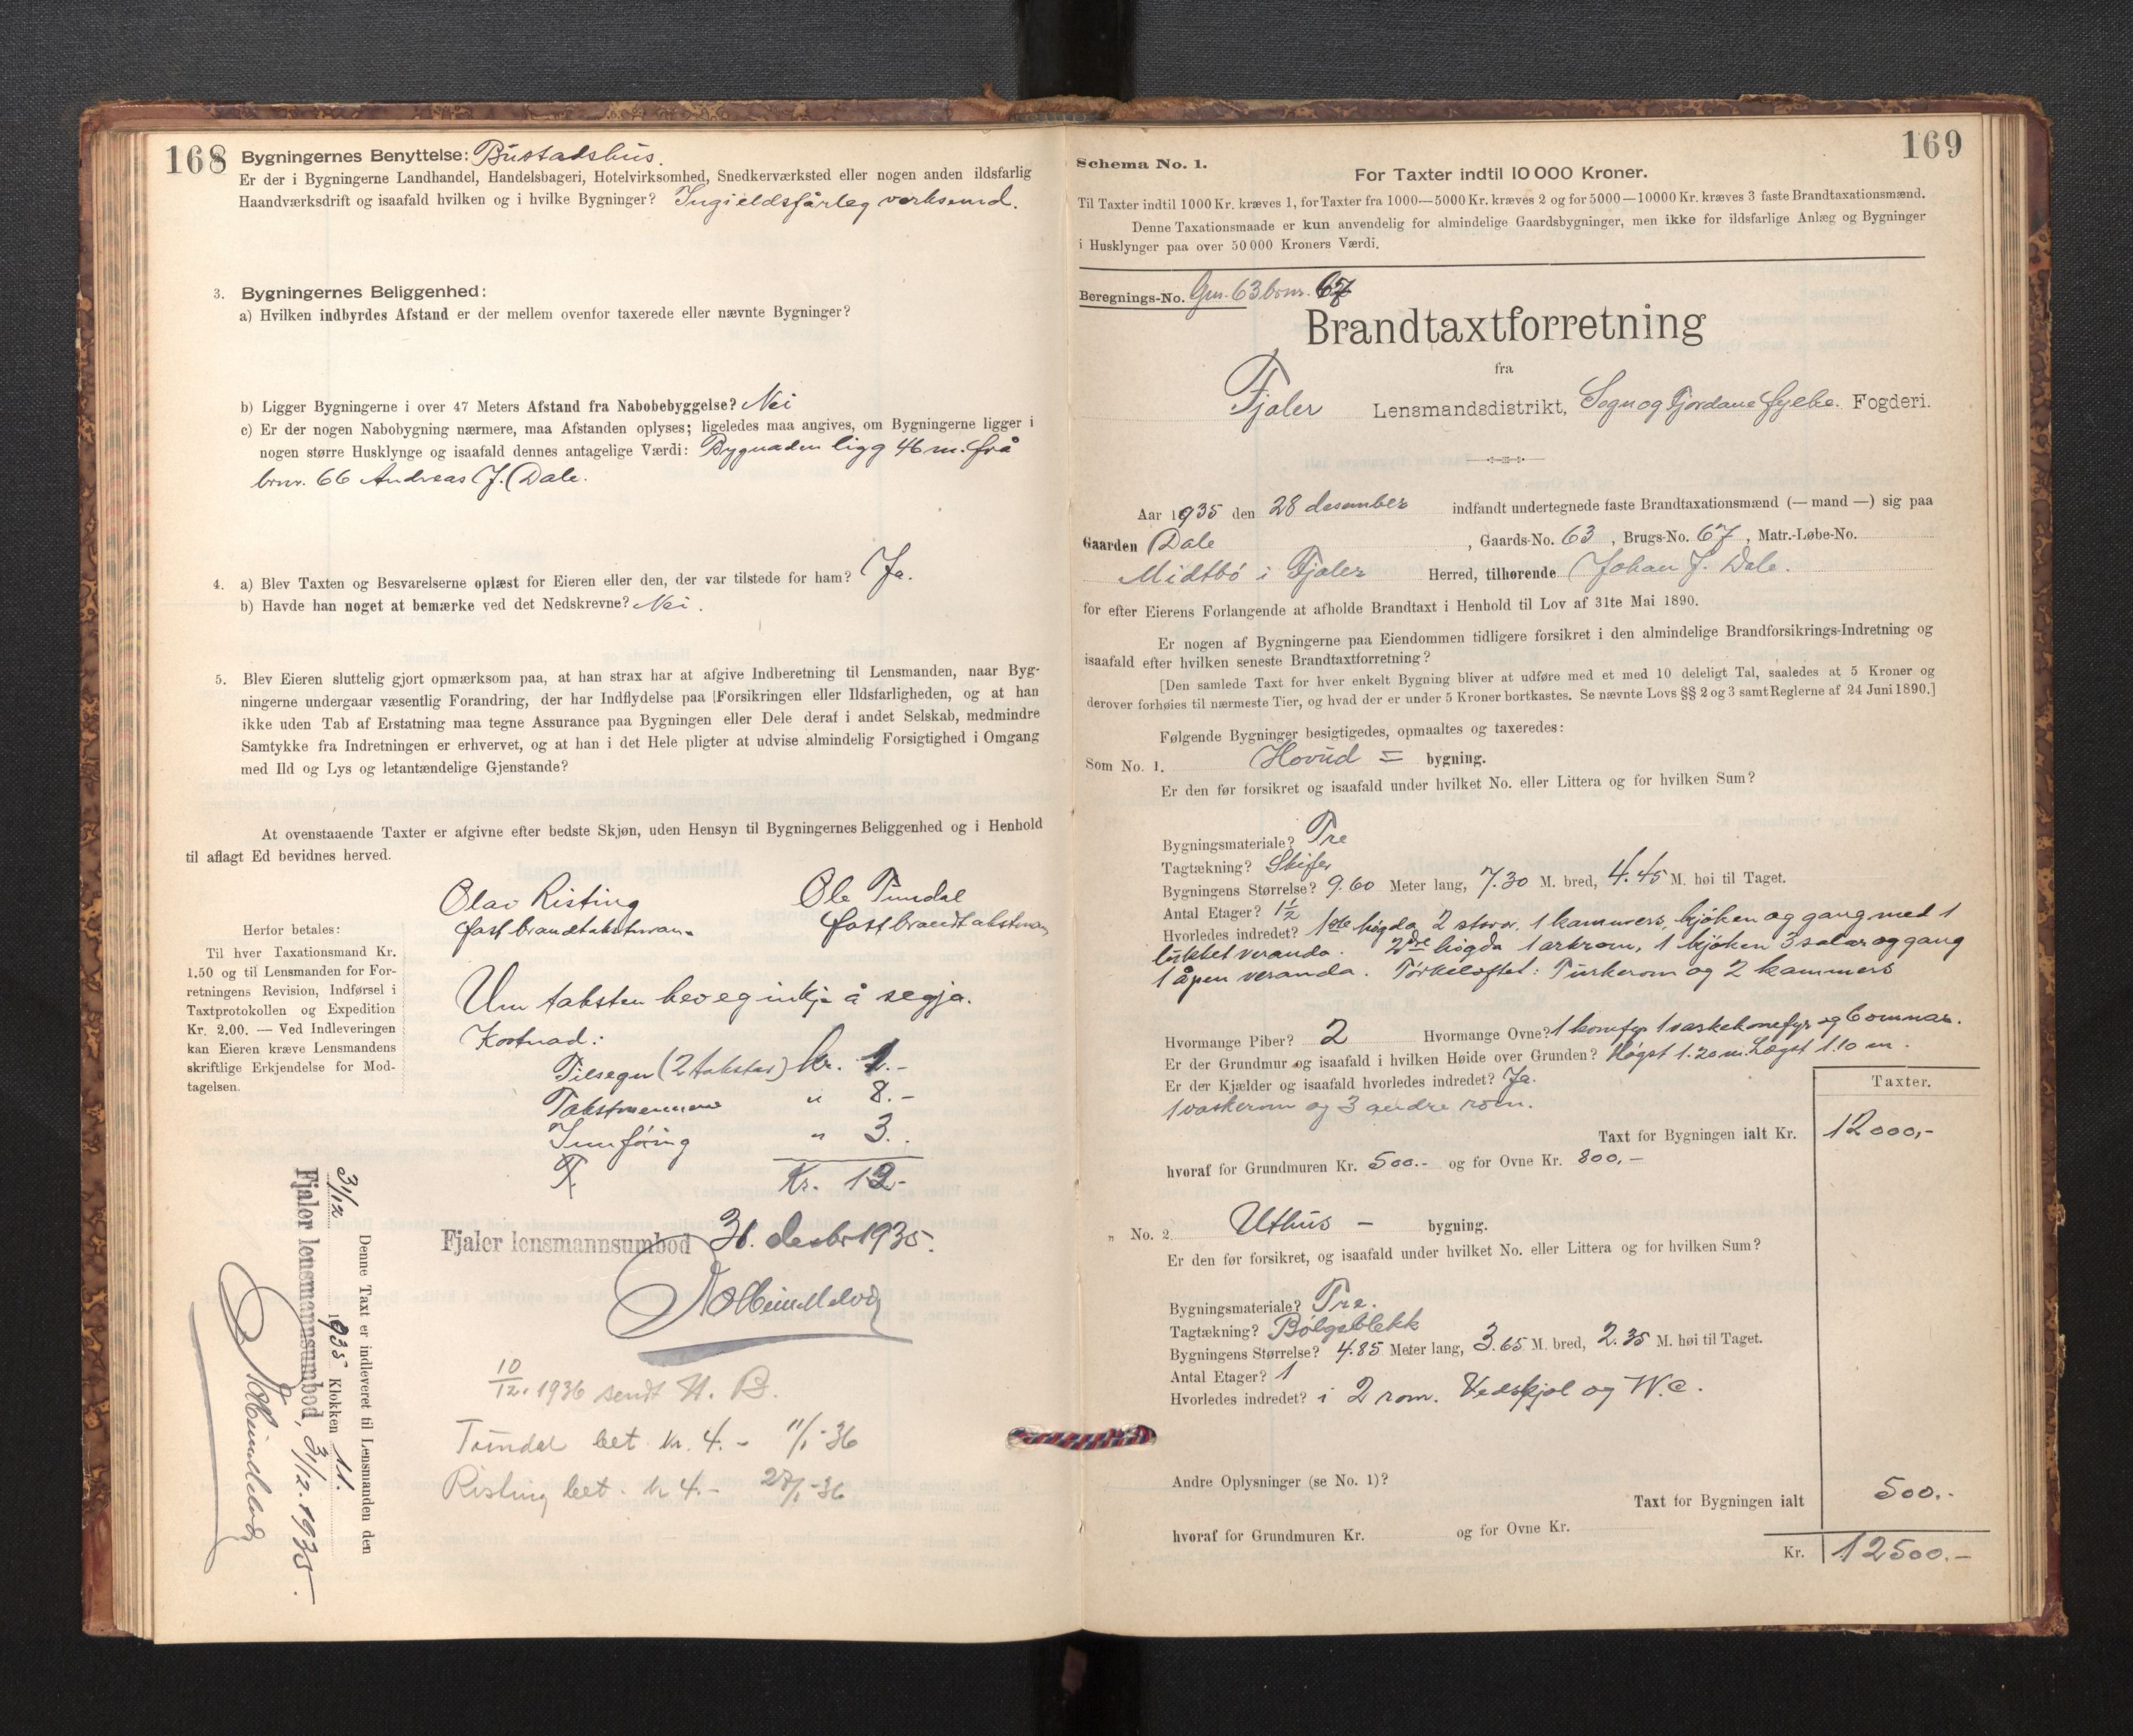 168
Bygningernes Benyttelse: Bustadshus.
Er der i Bygningerne Landhandel, Handelsbageri, Hotelvirksomhed, Snedkerværksted eller nogen anden ildsfarlig
Haandværksdrift og isaafald hvilken og i hvilke Bygninger? Ingi eldsfårleg verksemd.
3. Bygningernes Beliggenhed:
a) Hvilken indbyrdes Afstand er der mellem ovenfor taxerede eller nævnte Bygninger?
b) Ligger Bygningerne i over 47 Meters Afstand fra Nabobebyggelse? Nei
c) Er der nogen Nabobygning nærmere, maa Afstanden oplyses; ligeledes maa angives, om Bygningerne ligger i
nogen større Husklynge og isaafald dennes antagelige Værdi: Bygnaden ligg 46 m. frå
brnr. 66 Andreas J. Dale.
4. a) Blev Taxten og Besvarelserne oplæst for Eieren eller den, der var tilstede for ham? Ja.
b) Havde han noget at bemærke ved det Nedskrevne? Nei.
5. Blev Eieren sluttelig gjort opmærksom paa, at han strax har at afgive Indberetning til Lensmanden, naar Byg-
ningerne undergaar væsentlig Forandring, der har Indflydelse paa Forsikringen eller Ildsfarligheden, og at han
ikke uden Tab af Erstatning maa tegne Assurance paa Bygningen eller Dele deraf i andet Selskab, medmindre
Samtykke fra Indretningen er erhvervet, og at han i det Hele pligter at udvise almindelig Forsigtighed i Omgang
med Ild og Lys og letantændelige Gjenstande?
At ovenstaaende Taxter er afgivne efter bedste Skjøn, uden Hensyn til Bygningernes Beliggenhed og i Henhold
til aflagt Ed bevidnes herved.
Olav Risting Ole Tundal
fast brandtakstman. fast brandtakstman
Herfor betales:
Til hver Taxationsmand Kr.
1.50 og til Lensmanden for For-
retningens Revision, Indførsel i
Taxtprotokollen og Expedition
Kr. 2.00. — Ved Indleveringen
kan Eieren kræve Lensmandens
skriftlige Erkjendelse for Mod-
tagelsen.
Um taksten hev eg inkje å segja.
Kostnad:
Tilsegn (2 takster) Kr. 1.-
Takstmennene " 8.-
Innføring " 3.
Kr. 12.-
Fjaler lensmannsumbod 31. desbr 1935.
10/12. 1936 sendt H. B.
Tundal bet. kr. 4.- 11/1-36
Risting bet. kr 4.- 27/1-36
Denne Taxt er indleveret til Lensmanden den
31/12 1935 Klokken 11.
Fjaler lensmannsumbod, 31/12. 1935.
169
Schema No. 1.
For Taxter indtil 10 000 Kroner.
Til Taxter indtil 1000 Kr. kræves 1, for Taxter fra 1000—5000 Kr. kræves 2 og for 5000—10000 Kr. kræves 3 faste Brandtaxationsmænd.
Denne Taxationsmaade er kun anvendelig for almindelige Gaardsbygninger, men ikke for ildsfarlige Anlæg og Bygninger
i Husklynger paa over 50 000 Kroners Værdi.
Beregnings-No. Gnr. 63 brnr. 67
Brandtaxtforretning
fra
Fjaler Lensmandsdistrikt, Sogn og Fjordane fylke. Fogderi.
Aar 1935 den 28 desember indfandt undertegnede faste Brandtaxationsmænd (— mand —) sig paa
Gaarden Dale , Gaards-No. 63 , Brugs-No. 67 , Matr.-Løbe-No.
Midtbö i Fjaler Herred, tilhørende Johan J. Dale.
for efter Eierens Forlangende at afholde Brandtaxt i Henhold til Lov af 31te Mai 1890.
Er nogen af Bygningerne paa Eiendommen tidligere forsikret i den almindelige Brandforsikrings-Indretning og
isaafald efter hvilken seneste Brandtaxtforretning?
[Den samlede Taxt for hver enkelt Bygning bliver at udføre med et med 10 deleligt Tal, saaledes at 5 Kroner og
derover forhøies til nærmeste Tier, og hvad der er under 5 Kroner bortkastes. Se nævnte Lovs §§ 2 og 3 samt Reglerne af 24 Juni 1890.]
Følgende Bygninger besigtigedes, opmaaltes og taxeredes:
Som No. 1. Hovud = bygning.
Er den før forsikret og isaafald under hvilket No. eller Littera og for hvilken Sum?
Bygningsmateriale? Tre
Tagtækning? Skifer
Bygningens Størrelse? 9.60 Meter lang, 7.30 M. bred, 4.45 M. høi til Taget.
Antal Etager? 1½
Hvorledes indredet? 1ste høgda 2 stover, 1 kammers, kjøken og gang med 1
lukket veranda. 2dre høgda 1 arkrom, 1 kjøken 3 salar og gang
1 åpen veranda. Tørkeloftet: Turkerom og 2 kammers
Hvormange Piber? 2 Hvormange Ovne? 1 komfyr 1 vaskekonefyr og 6 omnar.
Er der Grundmur og isaafald i hvilken Høide over Grunden? Høgst 1.20 m. Lægst 1.10 m.
Er der Kjælder og isaafald hvorledes indredet? Ja.
1 vaskerom og 3 andre rom.
Taxter.
Taxt for Bygningen ialt Kr. 12000,-
hvoraf for Grundmuren Kr. 500.- og for Ovne Kr. 800,-
„ No. 2. Uthus - bygning.
Er den før forsikret, og isaafald under hvilket No. eller Littera og for hvilken Sum?
Bygningsmateriale? Tre.
Tagtækning? Bölgeblekk
Bygningens Størrelse? 4.85 Meter lang, 3.65 M. bred, 2.35 M. høi til Taget.
Antal Etager? 1
Hvorledes indredet? i 2 rom. Vedskjol og W.C.
Andre Oplysninger (se No. 1)?
Taxt for Bygningen ialt 500.-
hvoraf for Grundmuren Kr. og for Ovne Kr.
Kr. 12500.-